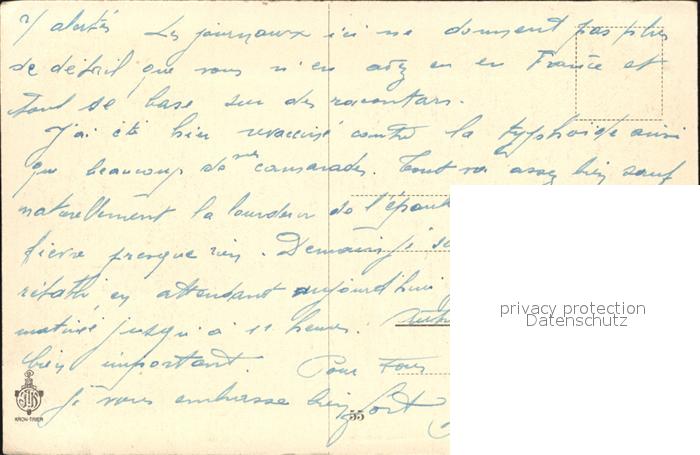 7 alertés Les journaux ici ne donnent pas plus
de détail que vous n'en avez eu en France et
tout se base sur des racontars.
J'ai été hier revacciné contre la typhoïde ainsi
que beaucoup de mes camarades. Tout va assez bien sauf
naturellement la lourdeur de l'épaule
fièvre presque rien. Demain je
rétabli en attendant aujourd'hui
matinée jusqu'à 11 heures.
bien important. Pour tous
Je vous embrasse bien fort
55
KRON-TRIER
privacy protection
Datenschutz